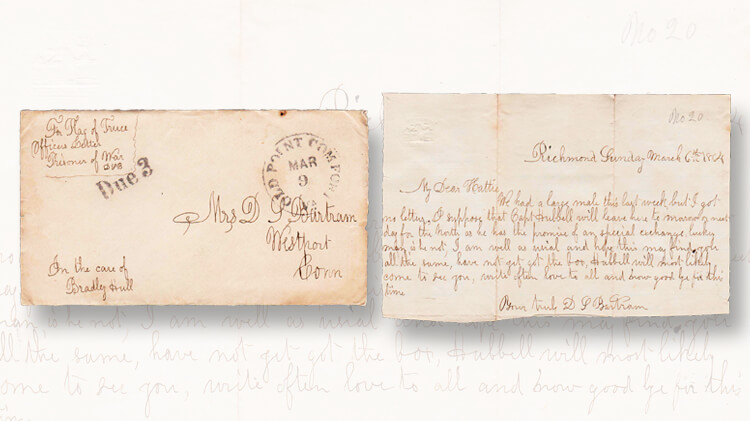 Fr Flag of Truce
Officers Letter
Prisoner of War
Due 3
OLD POINT COMFORT
MAR
9
VA
Mrs D S Bartram
Westport
Conn
In the care of
Bradly Hull
No 20
Richmond Sunday March 6th 1864
My Dear Hattie
We had a large mail this last week but I got
no letter, I suppose that Capt Hubbell will leave here to morrow or next
day for the North as he has the promise of an special exchange, lucky
man is he not, I am well as usual and hope this may find you
all the same, have not got got the box, Hubbell will most likely
come to see you, write often love to all and know good bye for this
time
Your truly D S Bartram
No 20
man is he not, I am well as usual and hope this may find you
all the same, have not got got the box, Hubbell will most likely
come to see you, write often love to all and know good bye for this
time